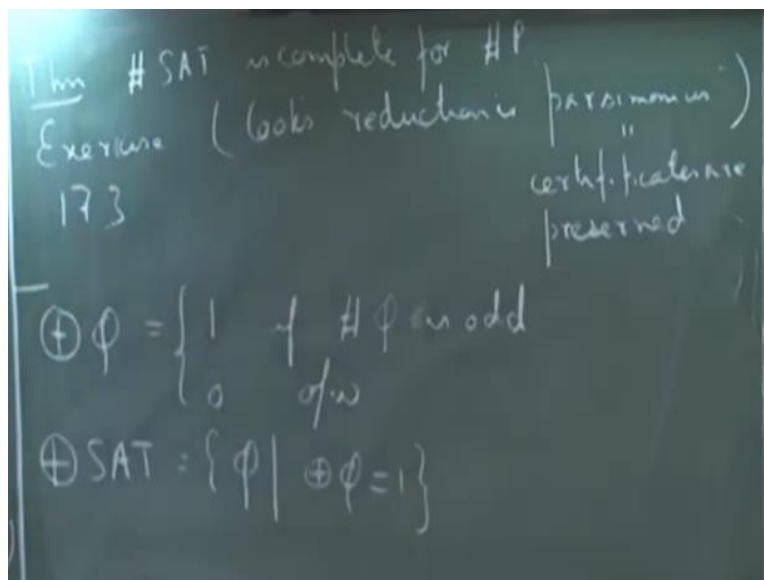 Thm #SAT is complete for #P
Exercise (Cook's reduction is "parsimonious")
17 3 "
certificates are
preserved
⊕φ = { 1 if #φ is odd
0 o/w
⊕SAT = {φ | ⊕φ = 1}